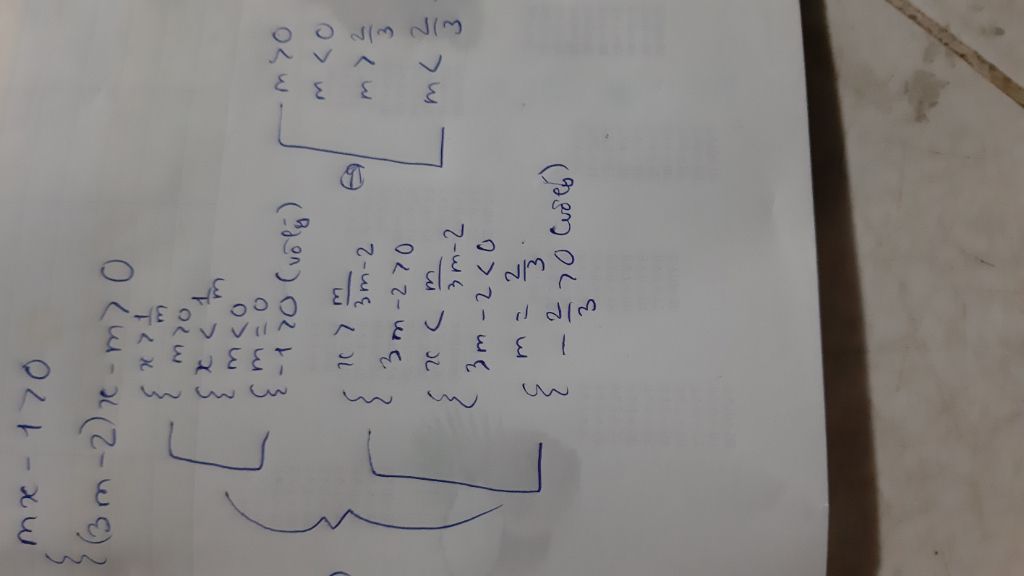 mx - 1 > 0
{(3m - 2)x - m > 0
{ x > 1/m
m > 0
{ x < 1/m
m < 0
{ m = 0
-1 > 0 (vô lý)
{ x > m/(3m-2)
3m - 2 > 0
{ x < m/(3m-2)
3m - 2 < 0
{ m = 2/3
-2/3 > 0 (vô lý)
⇔
m > 0
m < 0
m > 2/3
m < 2/3